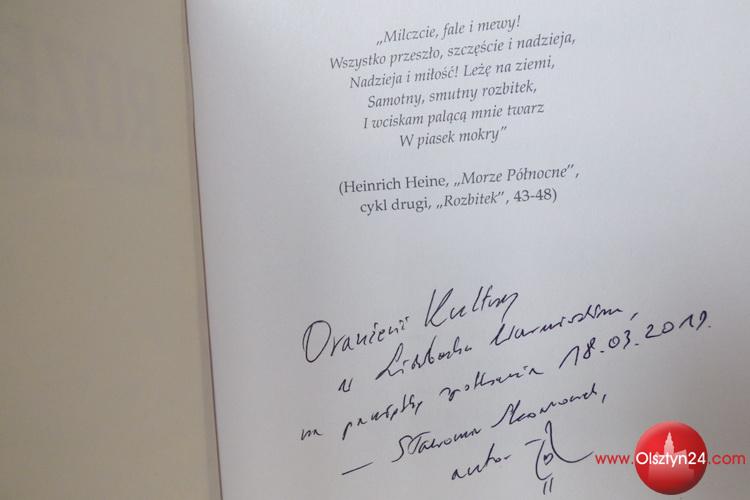 „Milczcie, fale i mewy!
Wszystko przeszło, szczęście i nadzieja,
Nadzieja i miłość! Leżę na ziemi,
Samotny, smutny rozbitek,
I wciskam palącą mnie twarz
W piasek mokry”
(Heinrich Heine, „Morze Północne”,
cykl drugi, „Rozbitek”, 43-48)
Oranżerii Kultury
w Lidzbarku Warmińskim,
na pamiątkę spotkania 18.03.2019.
— Sławomir
autor
www.Olsztyn24.com